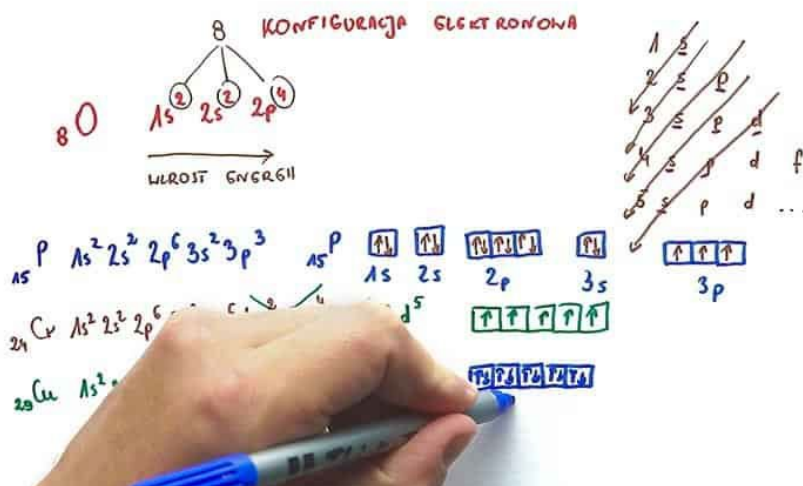 8 KONFIGURACJA ELEKTRONOWA
₈O 1s² 2s² 2p⁴
WZROST ENERGII
1 s
2 s p
3 s p d
4 s p d f
5 s p d ...
₁₅P 1s² 2s² 2p⁶ 3s² 3p³
₁₅P ↑↓ ↑↓ ↑↓ ↑↓ ↑↓ ↑↓ ↑ ↑ ↑
1s 2s 2p 3s 3p
₂₄Cr 1s² 2s² 2p⁶ d⁵ ↑ ↑ ↑ ↑ ↑
₂₉Cu 1s² ↑↓ ↑↓ ↑↓ ↑↓ ↑↓